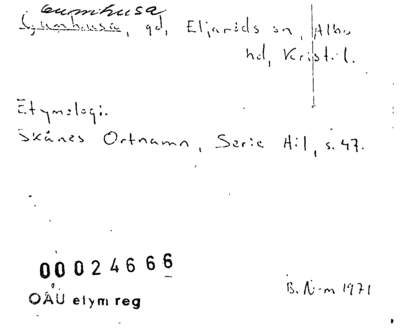 Gumihusa
Gumhusa, gd, Eljaröds sn, Albo
hd, Krist. l.
Etymologi.
Skånes Ortnamn, Serie A:1, s. 47.
00024666
OAU etym reg
B. N-m 1971